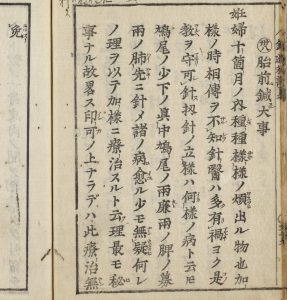 胎前鍼大事
妊婦十箇月ノ內種種樣樣ノ煩出ル物也加
樣ノ時相傳ヲ不知針醫ハ多有禍ヨク是
教ヲ守可針扨針ノ立樣ハ何樣ノ病ト云𪜈
鳩尾ノ少下ノ眞中鳩尾ノ兩廉兩ノ脾ノ募
兩ノ肺先ニ針メ諸ノ病愈ル少モ無疑何レ
ノ理ヲ以テ加樣ニ療治スルト云理最モ秘
事ナル故畧ス印可ノ上ナラデハ此療治無
免